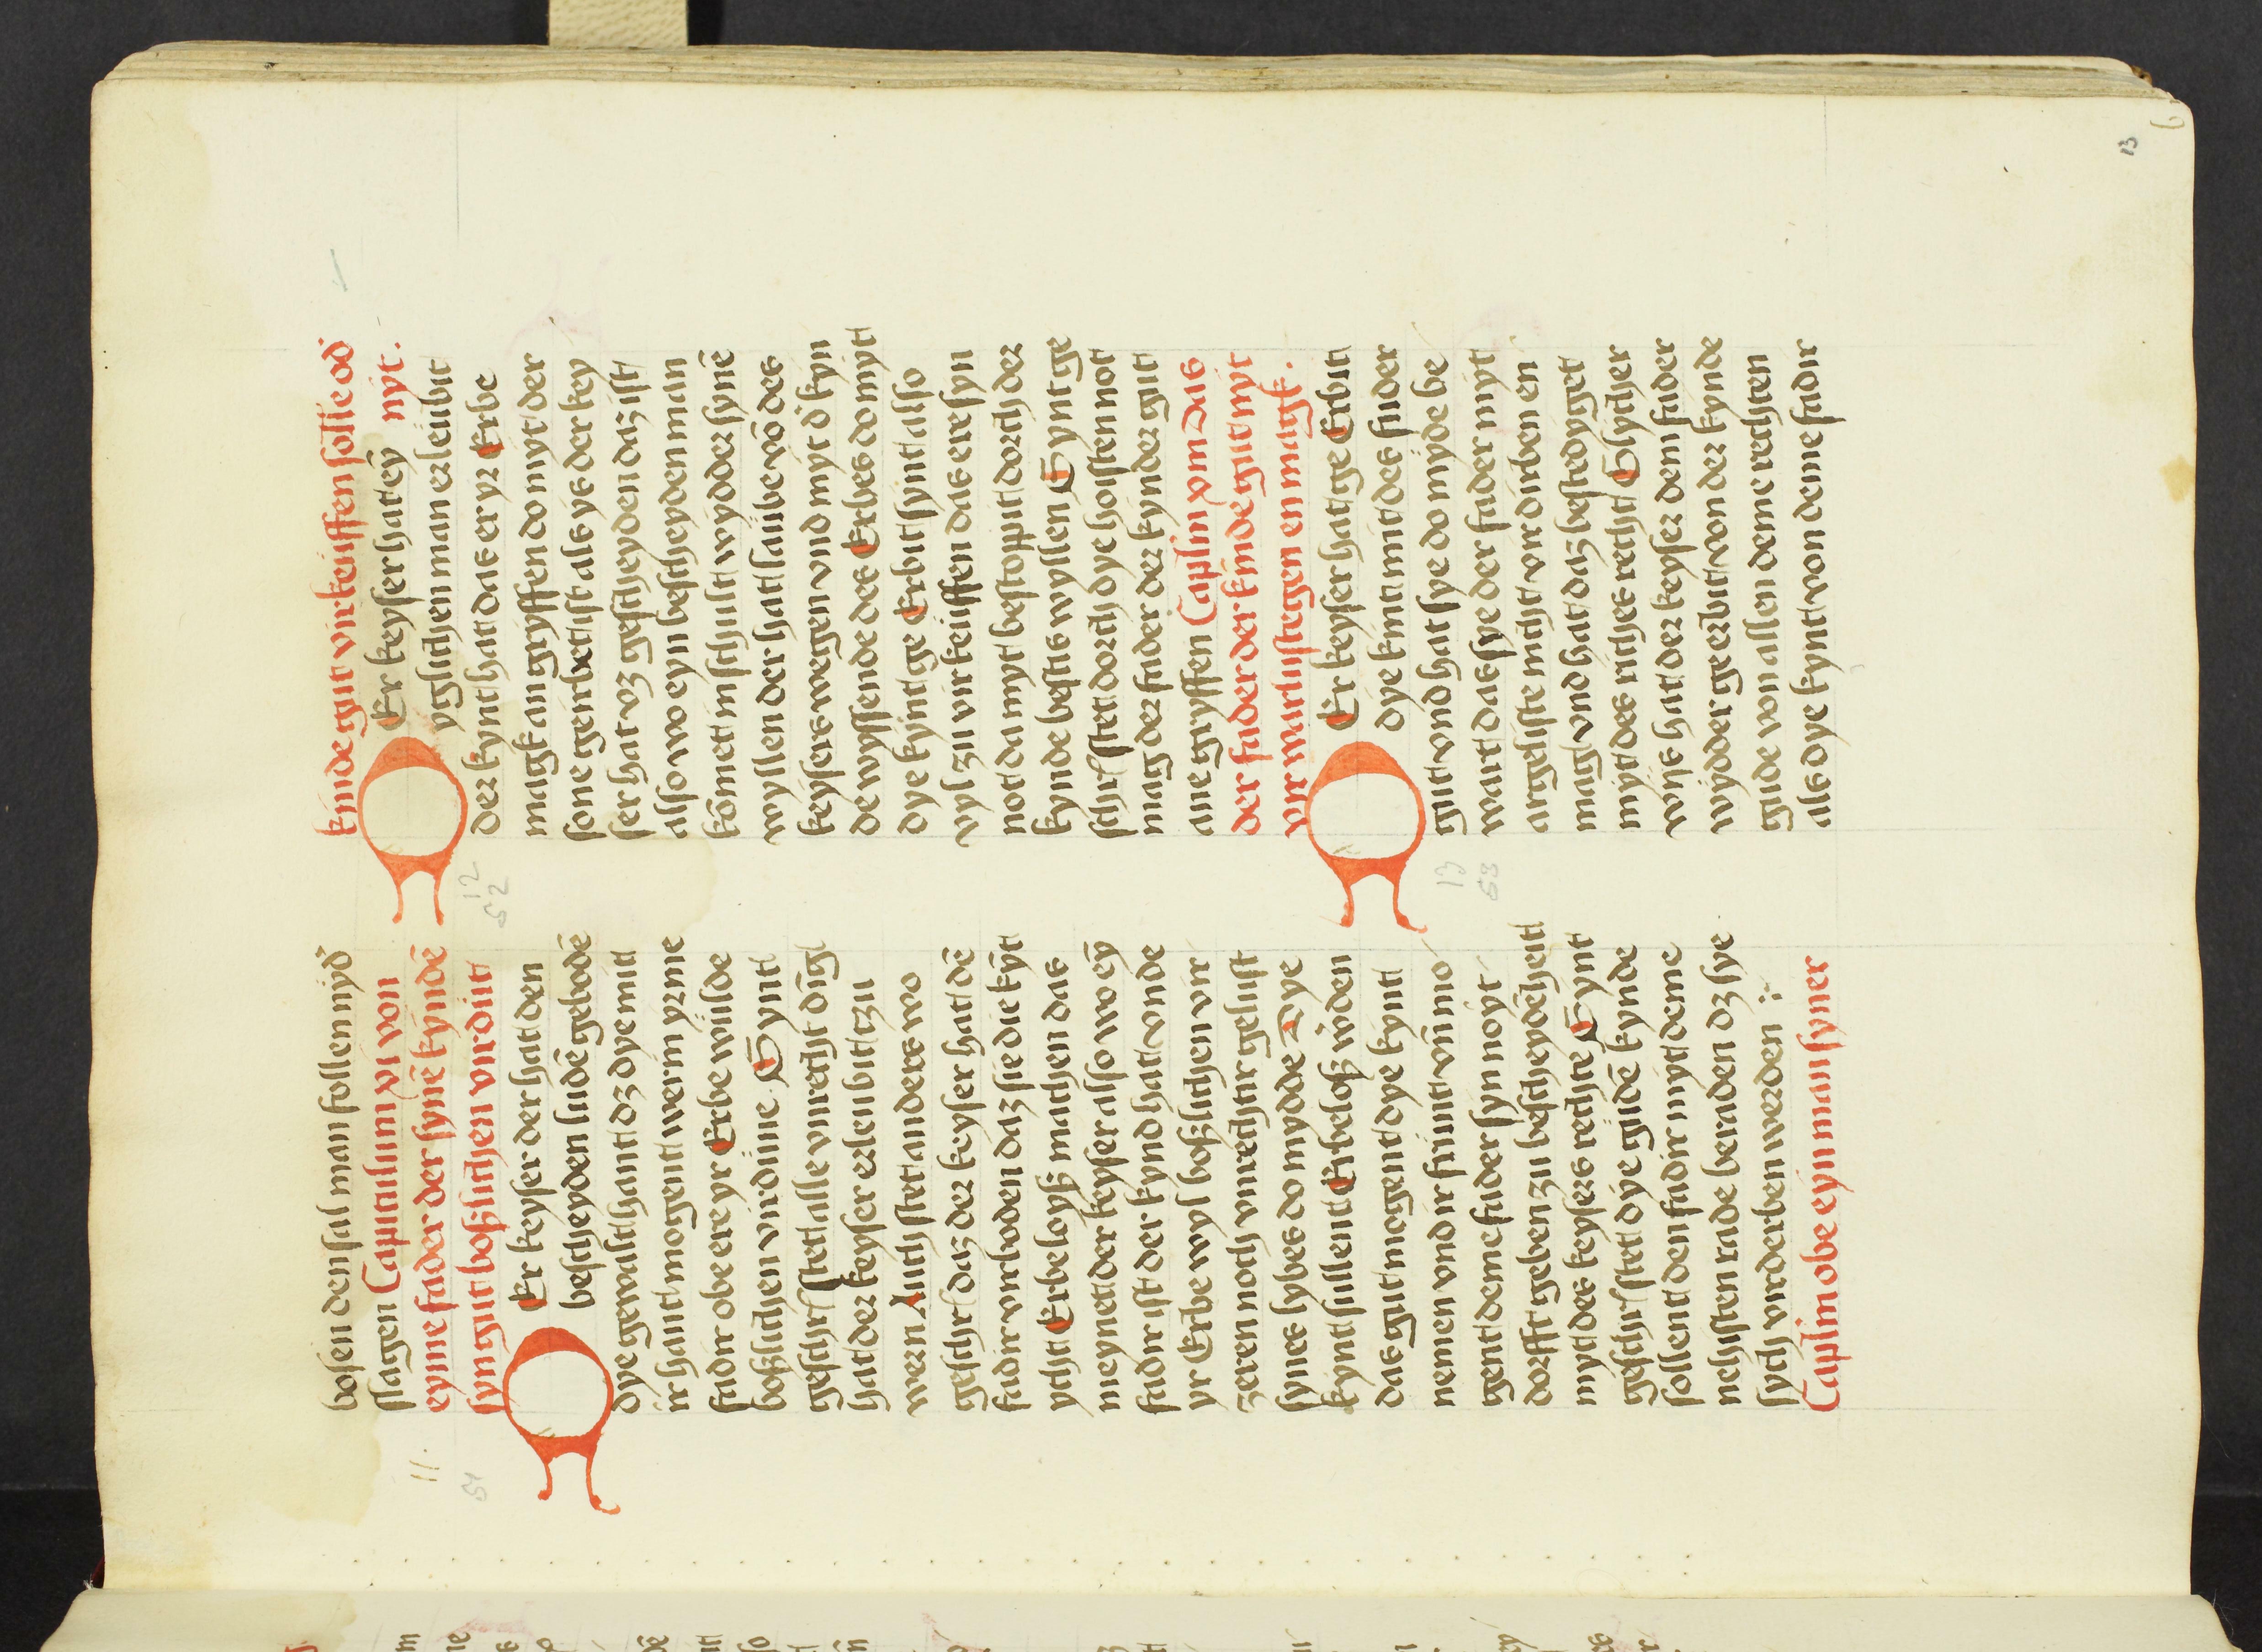 bosen den sal man sollen nyd̕
slagen Capitulum xi von
eyme fader der synē kyndē
syn gut boßlichen virdůt
Er keyser der hat den
bescheyden ludē gebodē
dye gewalt hant dz dye mit
ir hant mogent wern yrme
fadir obe ere yr Erbe wůlde
boßlichen virdůne Synt
geschr̕ stet alle vnrecht dīg
hat der keyser erleubit tzu
wern Auch stet anders wo
geschr̕ daz der keyser hat dē
fadir virboden daz sie die kȳt
ycht Erbe loyß machen das
meynet der keyser also wo eȳ
fadir ist der kynd hat vnde
yr Erbe wyl boßlichen vir
zeren noch vnrechtir gelust
synes lybes do mydde Dye
kynt sullent Erbeloß w̕den
das gut mogent dye kynt
nemen vnd ir frunt vn̄ mo
gent deme fader syn noyt
dorfft geben zu bescheydēheit
myt des keysers rechte Synt
geschr̕ stet dye gudē kynde
sollent den fadir myt deme
nehisten rade beraden dz sye
sych virderben werden :·
Caplm obe eyn man syner
kinde gut virkeuffen solle od̕
Er keyser hat eȳ nyt.
yglichen man erleubit
der kynt hat das er yr Erbe
magk an gryffen do myt der
sone geirbet ist als ys der key
ser hat vz gescheyden daz ist
also wo eyn bescheyden man
kōmet in schult wydder synē
wyllen der hat laube vō des
keysers wegen vnd myt d̕ kyn
de wyssende des Erbes do myt
dye kynt ge Erbit synt also
vyl zu virkeuffen das ere syn
not da myt bestoppit dorch der
kynde bestis wyllen Synt ge
schr̕ stet dorch dye hoisten not
mag der fader der kynder gut
ane gryffen Caplm xiii das
der fader der kinde gut nyt
vir warlistegen en magk.
Er keyser hat ge Erbit
dye kint mit des fader
gut vnd hat sye do myde be
wart das sye der fader myt
argeliste nicht vir dirben en
mag vnd hat daz bestedyget
myt des riches recht Glycher
wijs hat der keyser dem fader
wydder ge erbit von der kynde
gude von allen deme rechten
als dye kynt von deme fadir
11.
51
12
52
13
53
13
6